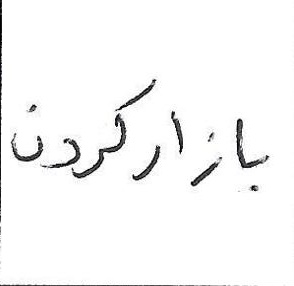 بازار کردن